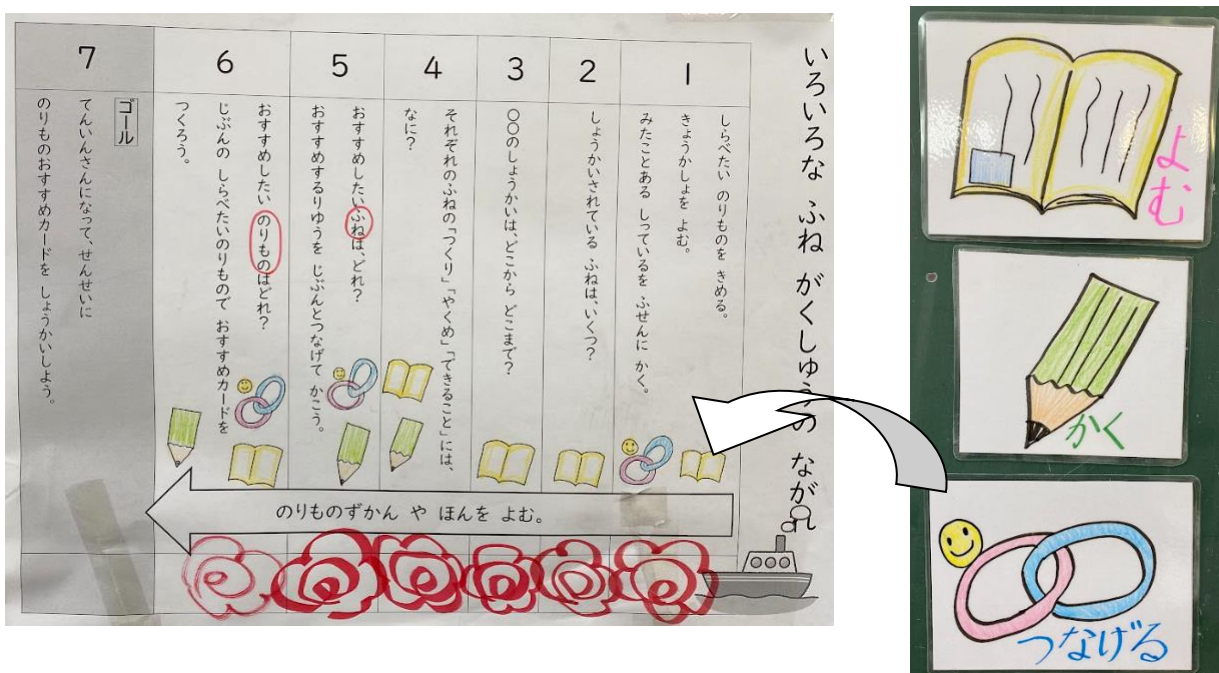 いろいろな ふね がくしゅうの ながれ
1
しらべたい のりものを きめる。
きょうかしょを よむ。
みたことある しっているを ふせんに かく。
2
しょうかいされている ふねは、いくつ?
3
〇〇のしょうかいは、どこから どこまで?
4
それぞれのふねの「つくり」「やくめ」「できること」には、
なに?
5
おすすめしたいふねは、どれ?
おすすめするりゆうを じぶんとつなげて かこう。
6
おすすめしたい のりものはどれ?
じぶんの しらべたいのりもので おすすめカードを
つくろう。
7
ゴール
てんいんさんになって、せんせいに
のりものおすすめカードを しょうかいしよう。
のりものずかん や ほんを よむ。
よむ
かく
つなげる